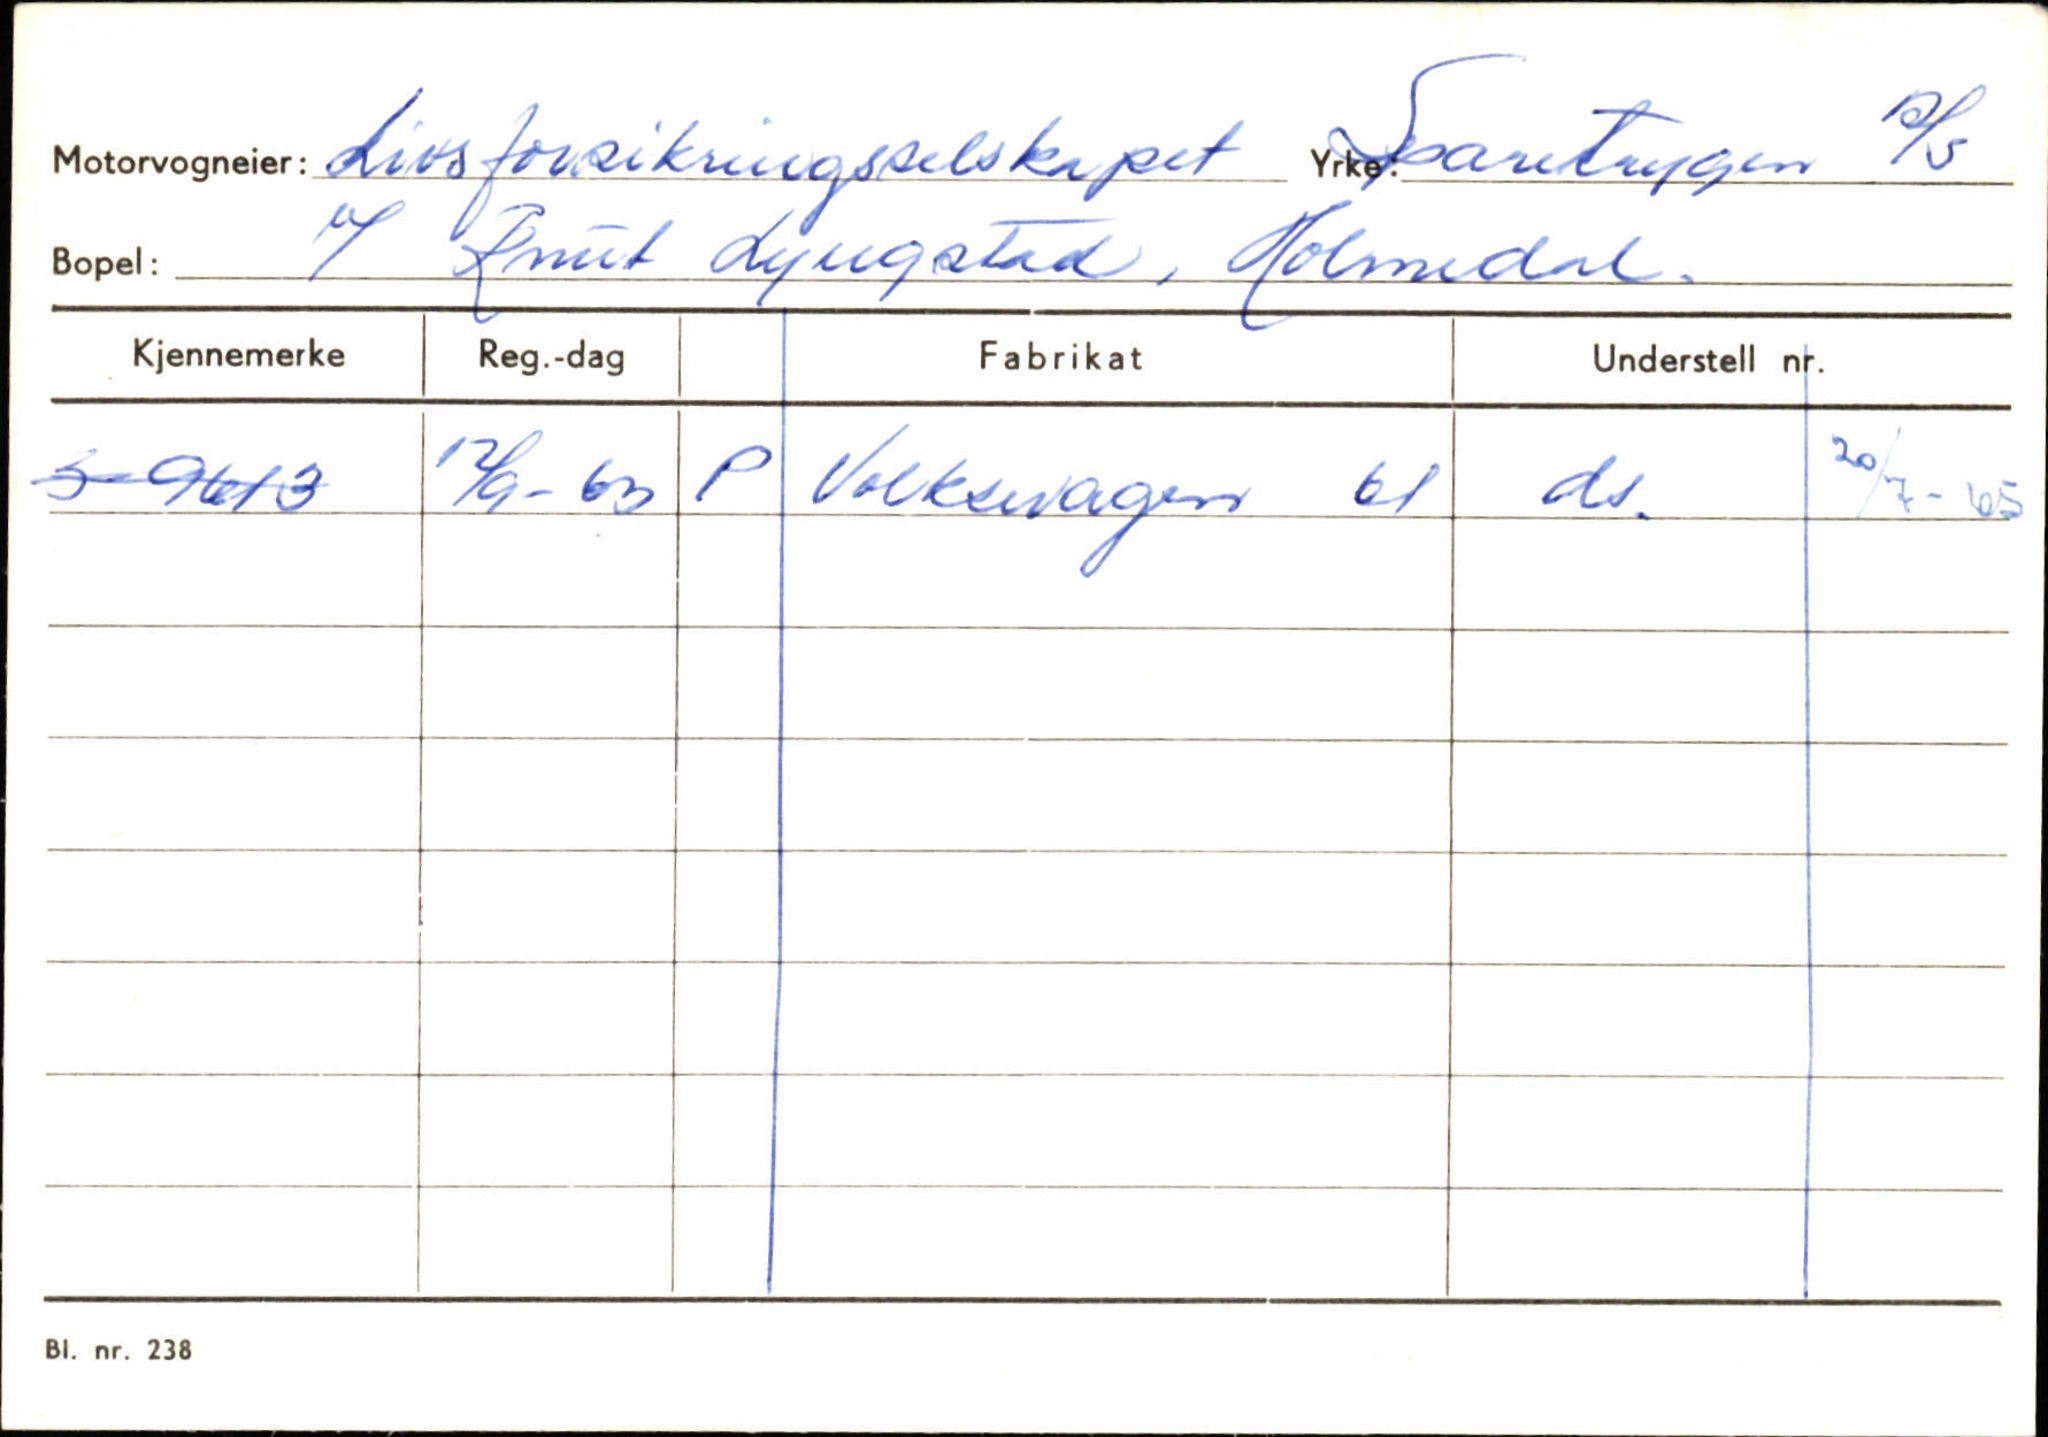 Motorvogneier: Livsforsikringsselskapet Yrke: Sparetrygen A/S
Bopel: v/ Knut Lyngstad, Holmedal.
Kjennemerke Reg.-dag Fabrikat Understell nr.
S-9613 12/9-63 P Volkswagen 61 ds. 20/7-65
Bl. nr. 238